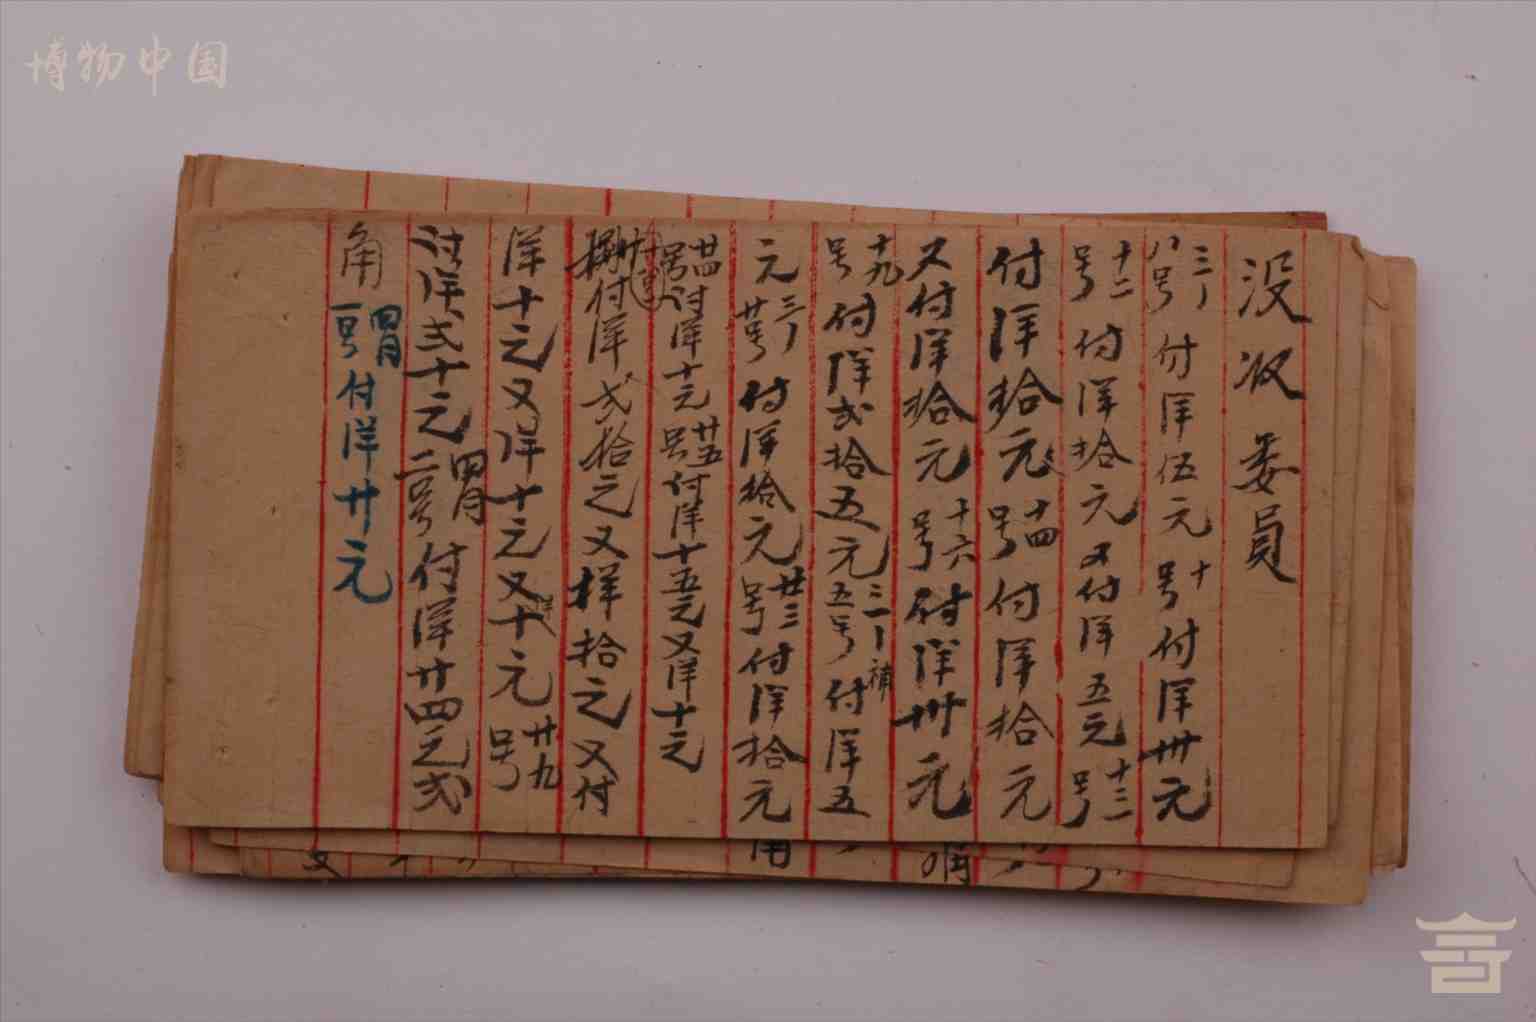 博物中国
没收委员
三八号付洋伍元十号付洋卅元
十二号付洋拾元又付洋五元十三号
付洋拾元十四号付洋拾元
又付洋拾元十六号付洋卅元
十九号付洋弍拾五元三一五号補付洋五
元三廿号付洋拾元廿三号付洋拾元
廿四号付洋十元廿五号付洋十五元又洋十元
付洋弍拾元又样拾元又付
洋十元又洋十元又十元廿九号
付洋弍十元四月二号付洋廿四元弍
角四月一号付洋廿元